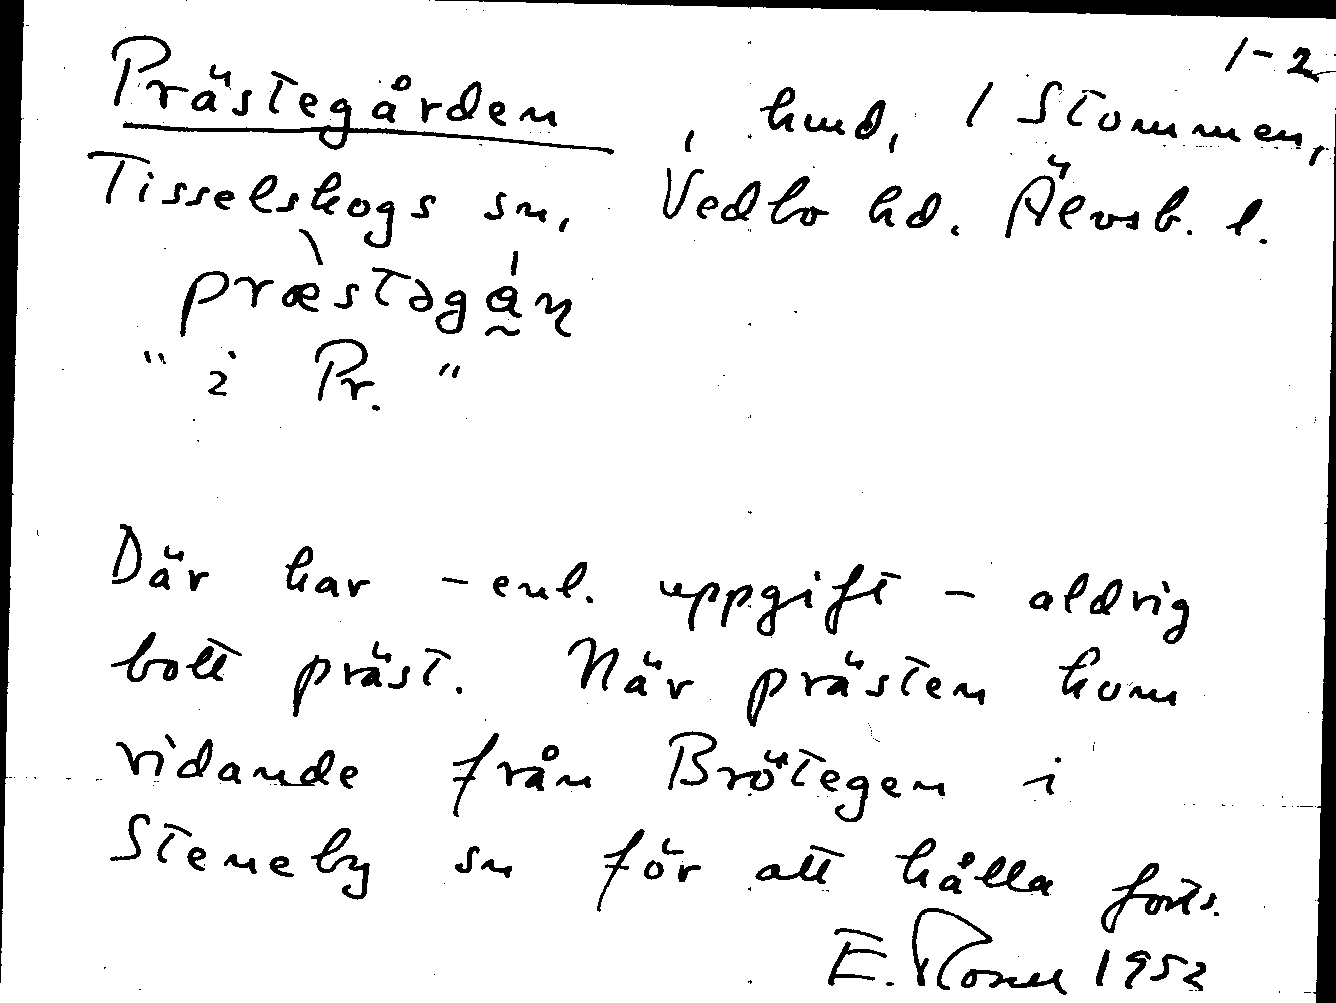 1-2
Prästegården, hmd, 1 Stommen,
Tisselskogs sn, Vedbo hd. Älvsb. l.
præ̀stəgá̰ɳ
"i Pr."
Där har - enl. uppgift - aldrig
bott präst. När prästen kom
ridande från Brötegen i
Steneby sn för att hålla forts.
E. 1952